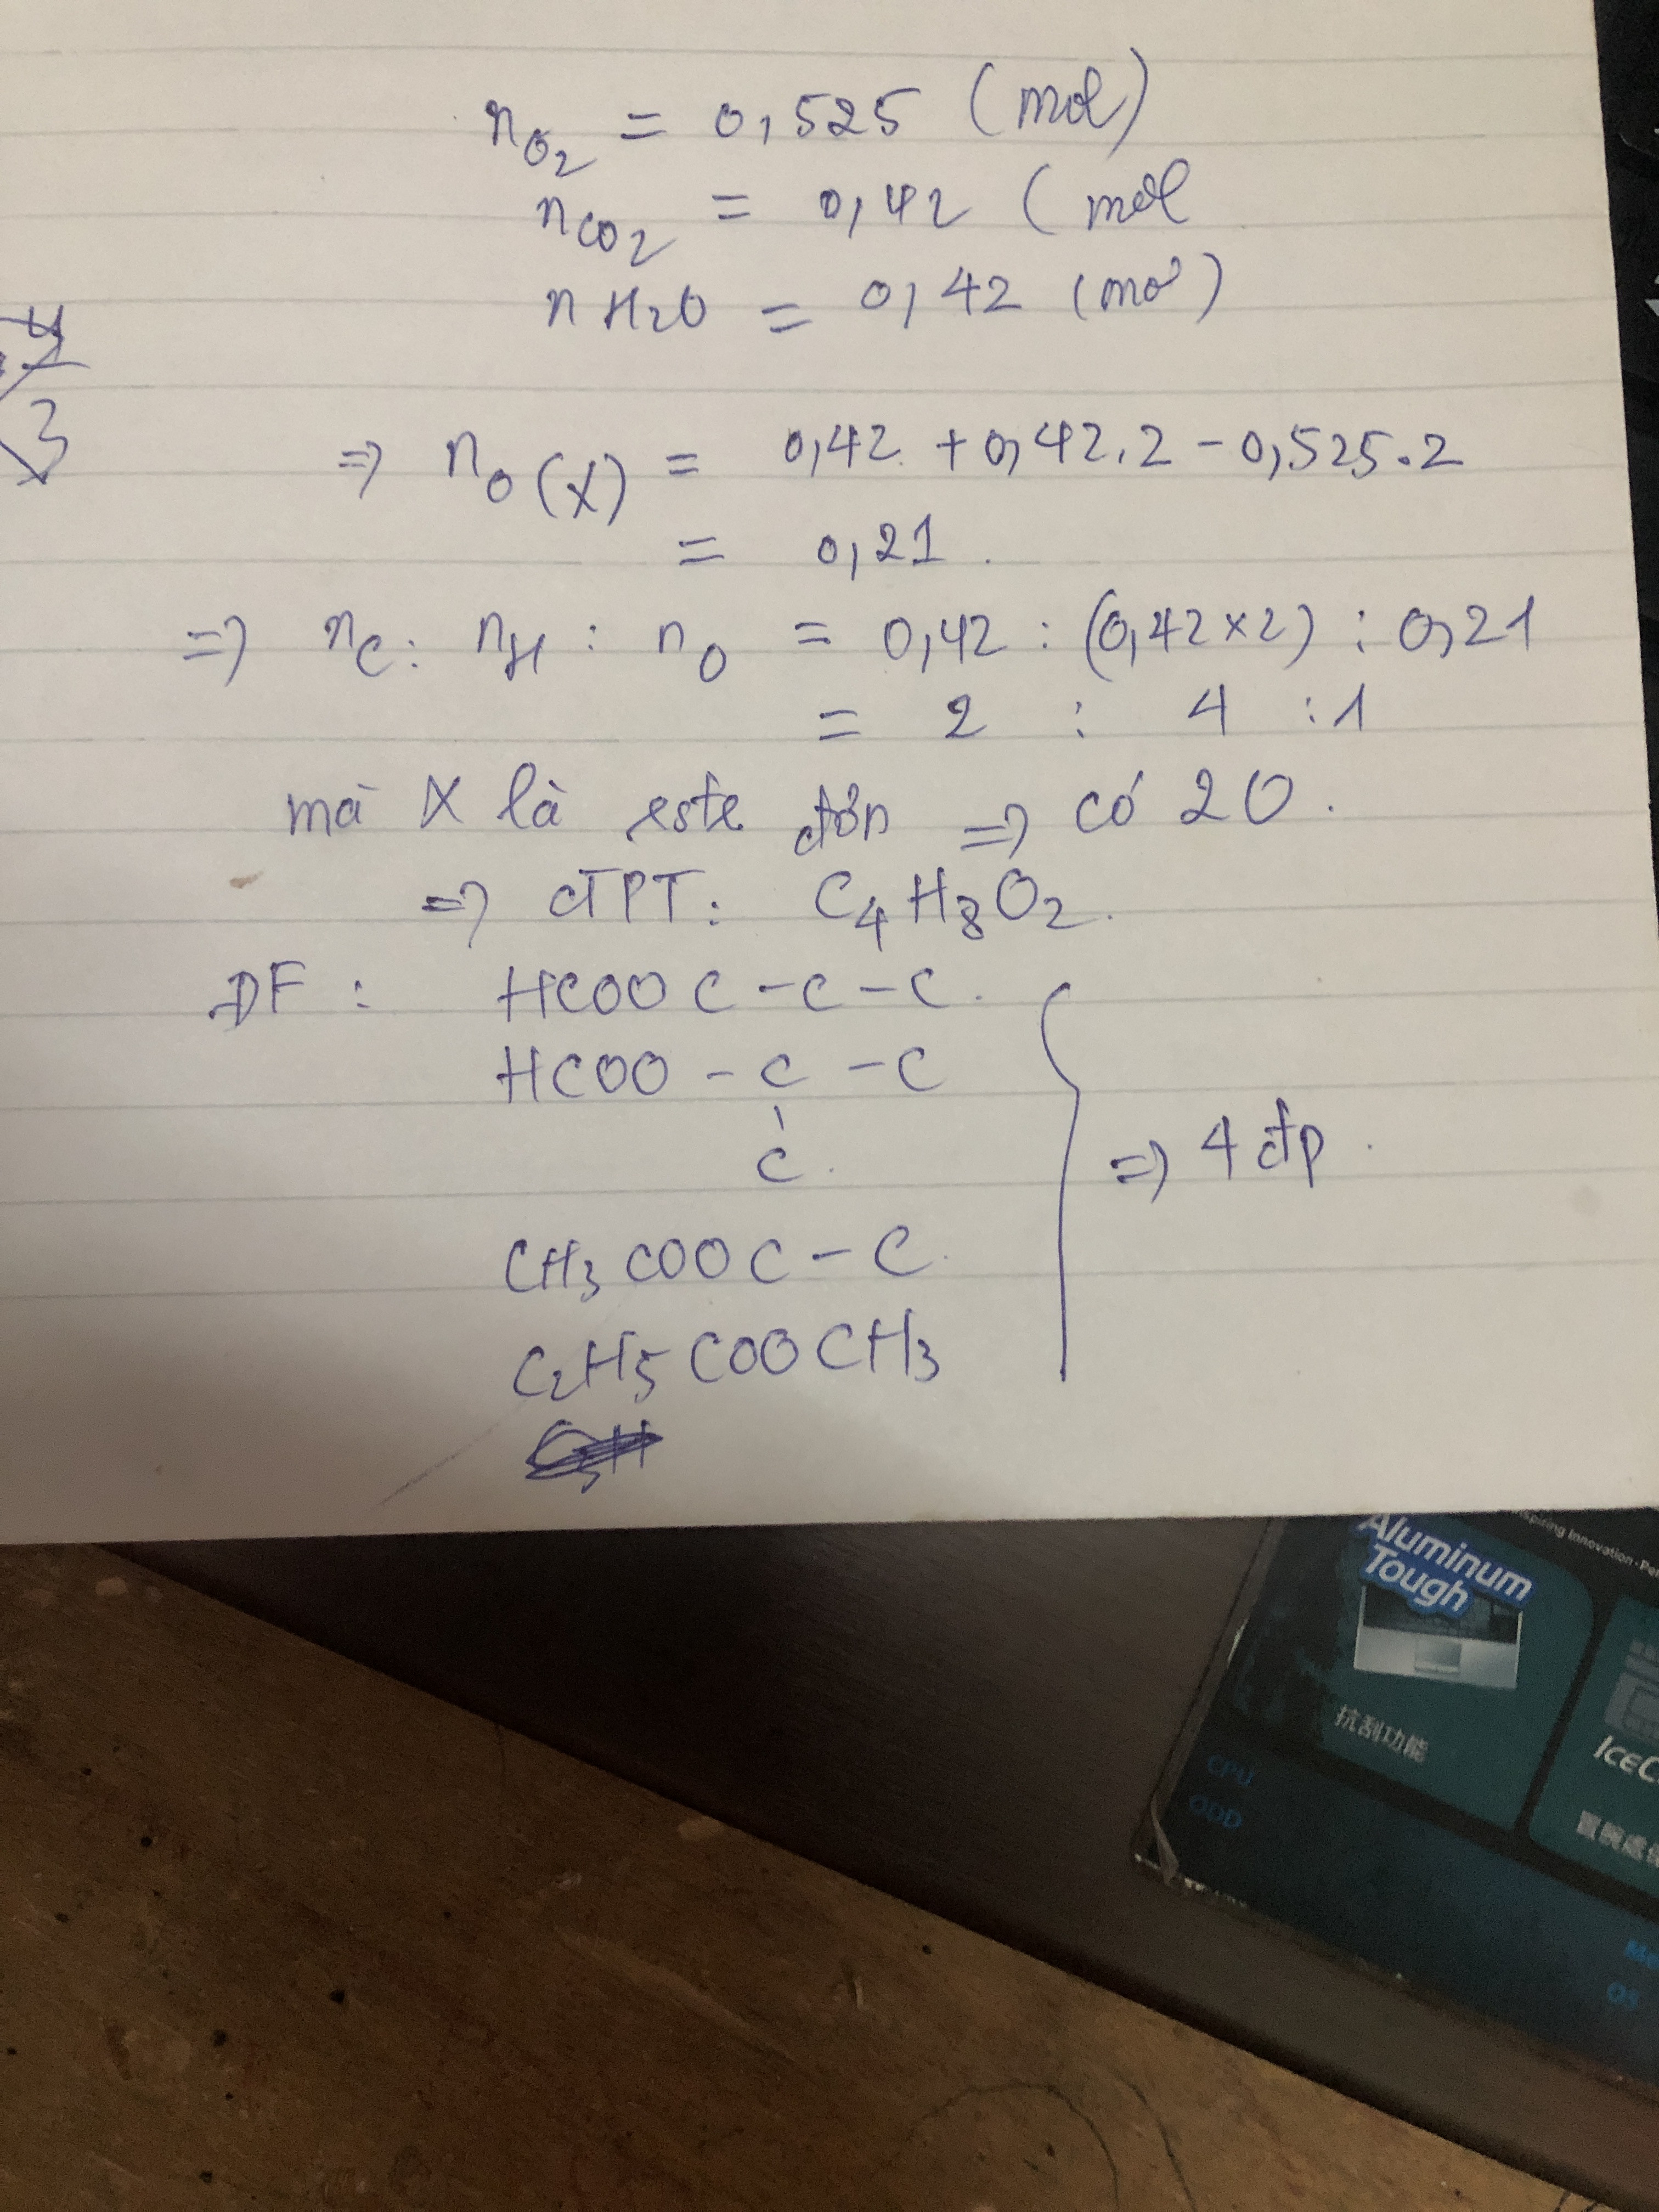 nO2 = 0,525 (mol)
nCO2 = 0,42 (mol
nH2O = 0,42 (mol)
4
3
=> nO(X) = 0,42 + 0,42.2 - 0,525.2
= 0,21.
=> nC : nH : nO = 0,42 : (0,42×2) : 0,21
= 2 : 4 : 1
mà X là este đơn => có 2O.
=> CTPT: C4H8O2.
ĐF : HCOOC-C-C.
HCOO-C-C
C.
CH3COOC-C.
C2H5COOCH3
=> 4 đp.
Inspiring Innovation
Aluminum
Tough
抗刮功能
CPU
ODD
OS